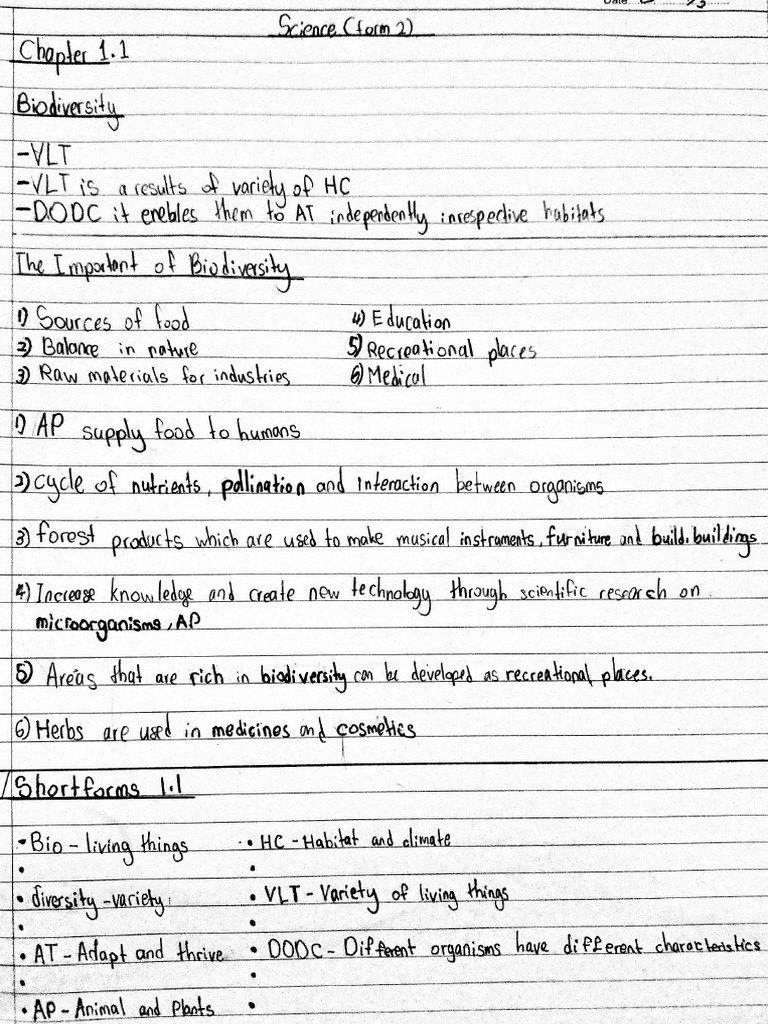 Date:
Science (form 2)
Chapter 1.1
Biodiversity
-VLT
-VLT is a results of variety of HC
-DODC it enebles them to AT independently inrespective habitats
The Important of Biodiversity
1) Sources of food
2) Balance in nature
3) Raw materials for industries
4) Education
5) Recreational places
6) Medical
1) AP supply food to humans
2) cycle of nutrients, pollination and interaction between organisms
3) forest products which are used to make musical instraments, furniture and build.buildings
4) Increase knowledge and create new technology through scientific research on
microorganisms, AP
5) Areas that are rich in biodiversity can be developed as recreational places.
6) Herbs are used in medicines and cosmetics
Shortforms 1.1
• Bio - living things
• diversity - variety
• AT - Adapt and thrive
• AP - Animal and Plants
• HC - Habitat and climate
• VLT - Variety of living things
• DODC - Different organisms have different characteristics